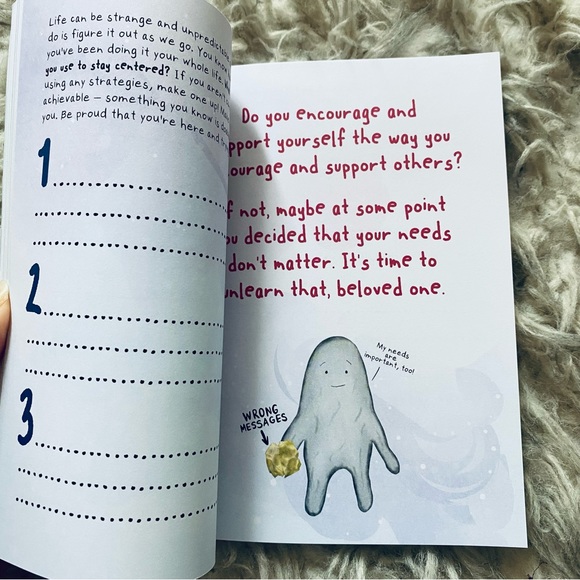 Life can be strange and
do is figure it out as we go. You
you've been doing it your whole life.
you use to stay centered? If you aren't
using any strategies, make one up!
achievable – something you know is
you. Be proud that you're here and
1
2
3
Do you encourage and
yourself the way you
and support others?
not, maybe at some point
decided that your needs
don't matter. It's time to
that, beloved one.
My needs
are
important, too!
WRONG
MESSAGES